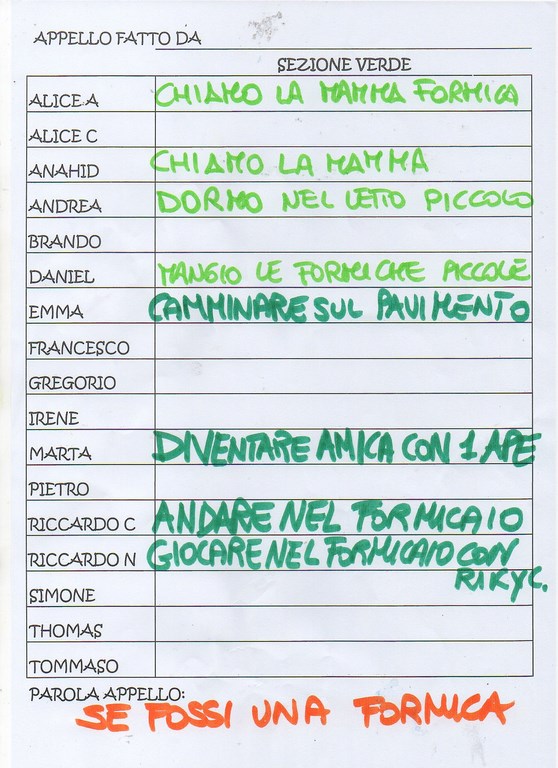 APPELLO FATTO DA
SEZIONE VERDE
ALICE A CHIAMO LA MAMMA FORMICA
ALICE C
ANAHID CHIAMO LA MAMMA
ANDREA DORMO NEL LETTO PICCOLO
BRANDO
DANIEL MANGIO LE FORMICHE PICCOLE
EMMA CAMMINARE SUL PAVIMENTO
FRANCESCO
GREGORIO
IRENE
MARTA DIVENTARE AMICA CON 1 APE
PIETRO
RICCARDO C ANDARE NEL FORMICAIO
RICCARDO N GIOCARE NEL FORMICAIO CON
RIKY C.
SIMONE
THOMAS
TOMMASO
PAROLA APPELLO:
SE FOSSI UNA FORMICA